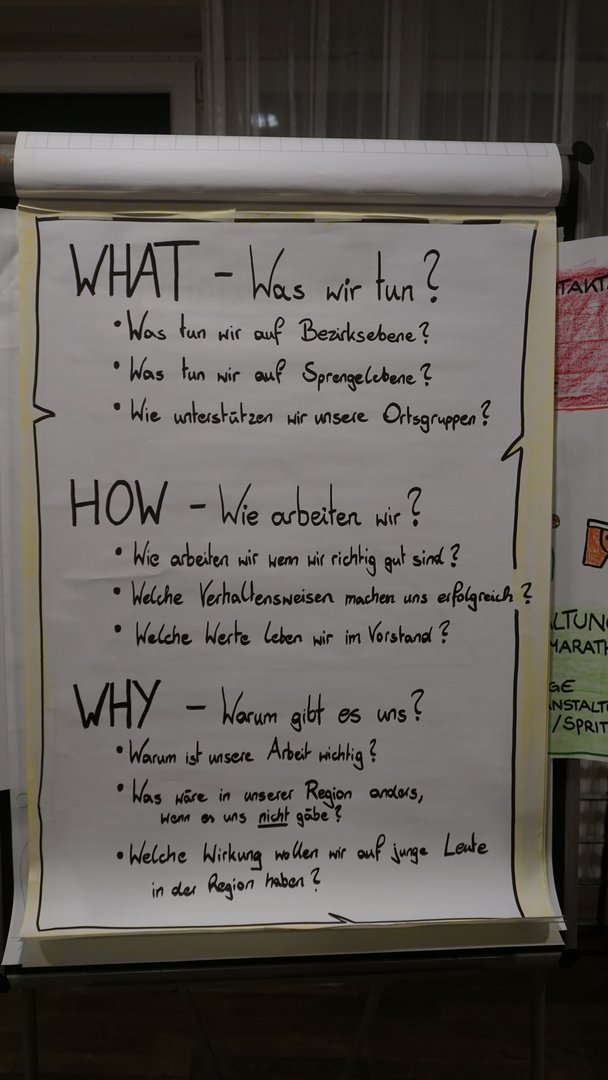 WHAT – Was wir tun?
• Was tun wir auf Bezirksebene?
• Was tun wir auf Sprengelebene?
• Wie unterstützen wir unsere Ortsgruppen?
HOW – Wie arbeiten wir?
• Wie arbeiten wir wenn wir richtig gut sind?
• Welche Verhaltensweisen machen uns erfolgreich?
• Welche Werte leben wir im Vorstand?
WHY – Warum gibt es uns?
• Warum ist unsere Arbeit wichtig?
• Was wäre in unserer Region anders,
wenn es uns nicht gäbe?
• Welche Wirkung wollen wir auf junge Leute
in der Region haben?
NTAKT
ALTUNG
MARATH
GE
NSTALT
/SPRIT